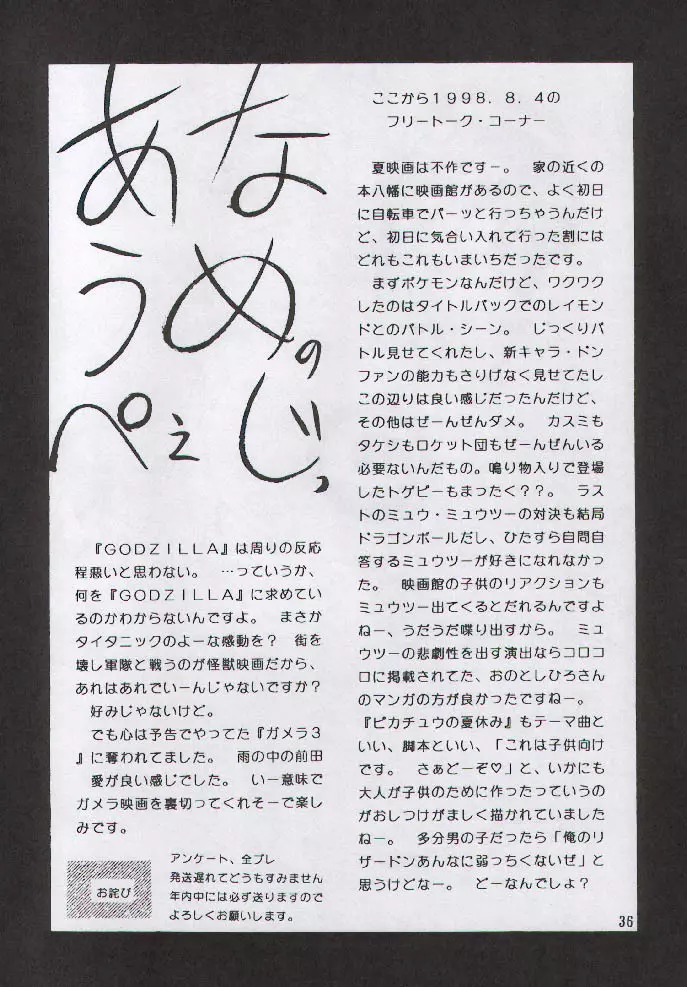 なめのじっ
あうぺぇ
ここから1998．8．4の
フリートーク・コーナー
夏映画は不作ですー。　家の近くの
本八幡に映画館があるので、よく初日
に自転車でパーッと行っちゃうんだけ
ど、初日に気合い入れて行った割には
どれもこれもいまいちだったです。
まずポケモンなんだけど、ワクワク
したのはタイトルバックでのレイモン
ドとのバトル・シーン。　じっくりバ
トル見せてくれたし、新キャラ・ドン
ファンの能力もさりげなく見せてたし
この辺りは良い感じだったんだけど、
その他はぜーんぜんダメ。　カスミも
タケシもロケット団もぜーんぜんいる
必要ないんだもの。鳴り物入りで登場
したトゲピーもまったく？？。　ラス
トのミュウ・ミュウツーの対決も結局
ドラゴンボールだし、ひたすら自問自
答するミュウツーが好きになれなかっ
た。　映画館の子供のリアクションも
ミュウツー出てくるとだれるんですよ
ねー、うだうだ喋り出すから。　ミュ
ウツーの悲劇性を出す演出ならコロコ
ロに掲載されてた、おのとしひろさん
のマンガの方が良かったですねー。
『ピカチュウの夏休み』もテーマ曲と
いい、脚本といい、「これは子供向け
です。　さぁどーぞ♡」と、いかにも
大人が子供のために作ったっていうの
がおしつけがましく描かれていました
ねー。　多分男の子だったら「俺のリ
ザードンあんなに弱っちくないぜ」と
思うけどなー。　どーなんでしょ？
『GODZILLA』は周りの反応
程悪いと思わない。　…っていうか、
何を『GODZILLA』に求めてい
るのかわからないんですよ。　まさか
タイタニックのよーな感動を？　街を
壊し軍隊と戦うのが怪獣映画だから、
あれはあれでいーんじゃないですか？
好みじゃないけど。
でも心は予告でやってた『ガメラ3
』に奪われてました。　雨の中の前田
愛が良い感じでした。　いー意味で
ガメラ映画を裏切ってくれそーで楽し
みです。
お詫び
アンケート、全プレ
発送遅れてどうもすみません
年内中には必ず送りますので
よろしくお願いします。
36